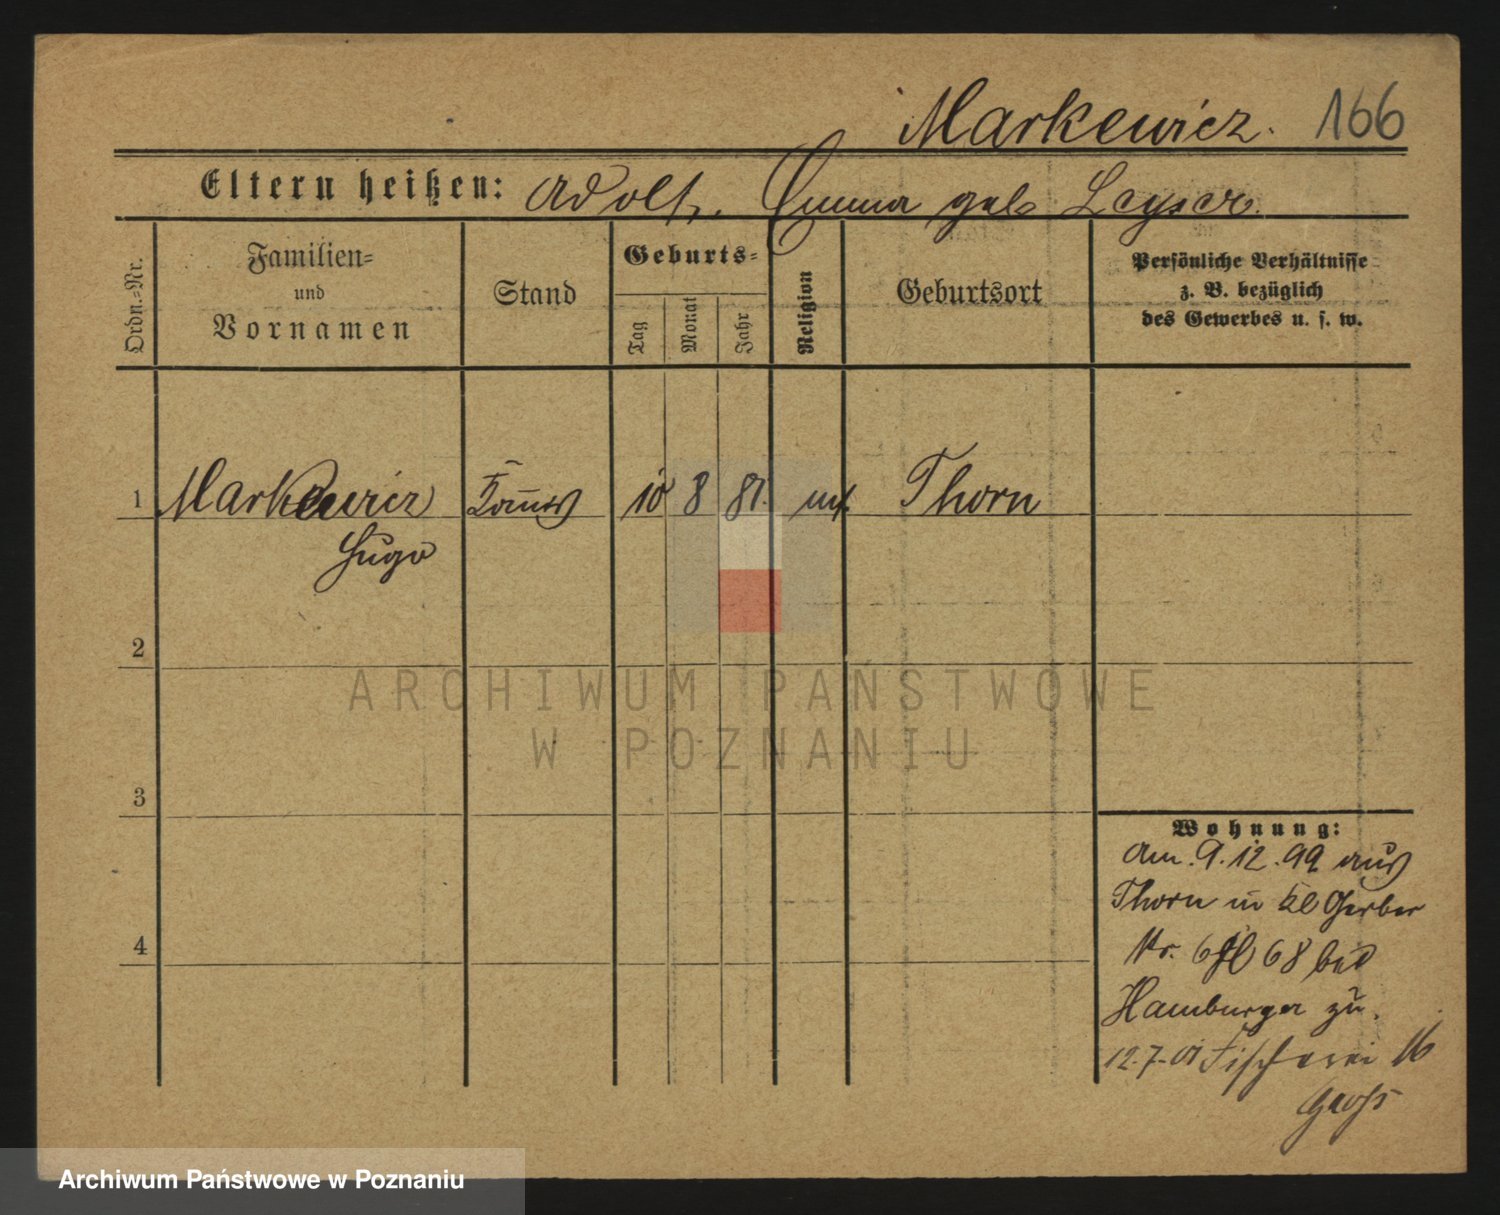 Markewicz. 166
Eltern heißen: Adolf, Emma geb Leyser.
Ordn.-Nr.
Familien-
und
Vornamen
Stand
Geburts-
Tag
Monat
Jahr
Religion
Geburtsort
Persönliche Verhältnisse
z. B. bezüglich
des Gewerbes u. s. w.
1 Markewicz 10 8 81. Thorn
Hugo
2
ARCHIWUM PAŃSTWOWE
W POZNANIU
3
4
Wohnung:
am. 9.12.99 aus
Thorn in Kl Gerber
Nr. 6 68 bei
Hamburger zu.
12.7.01 Fischerei 16
Archiwum Państwowe w Poznaniu